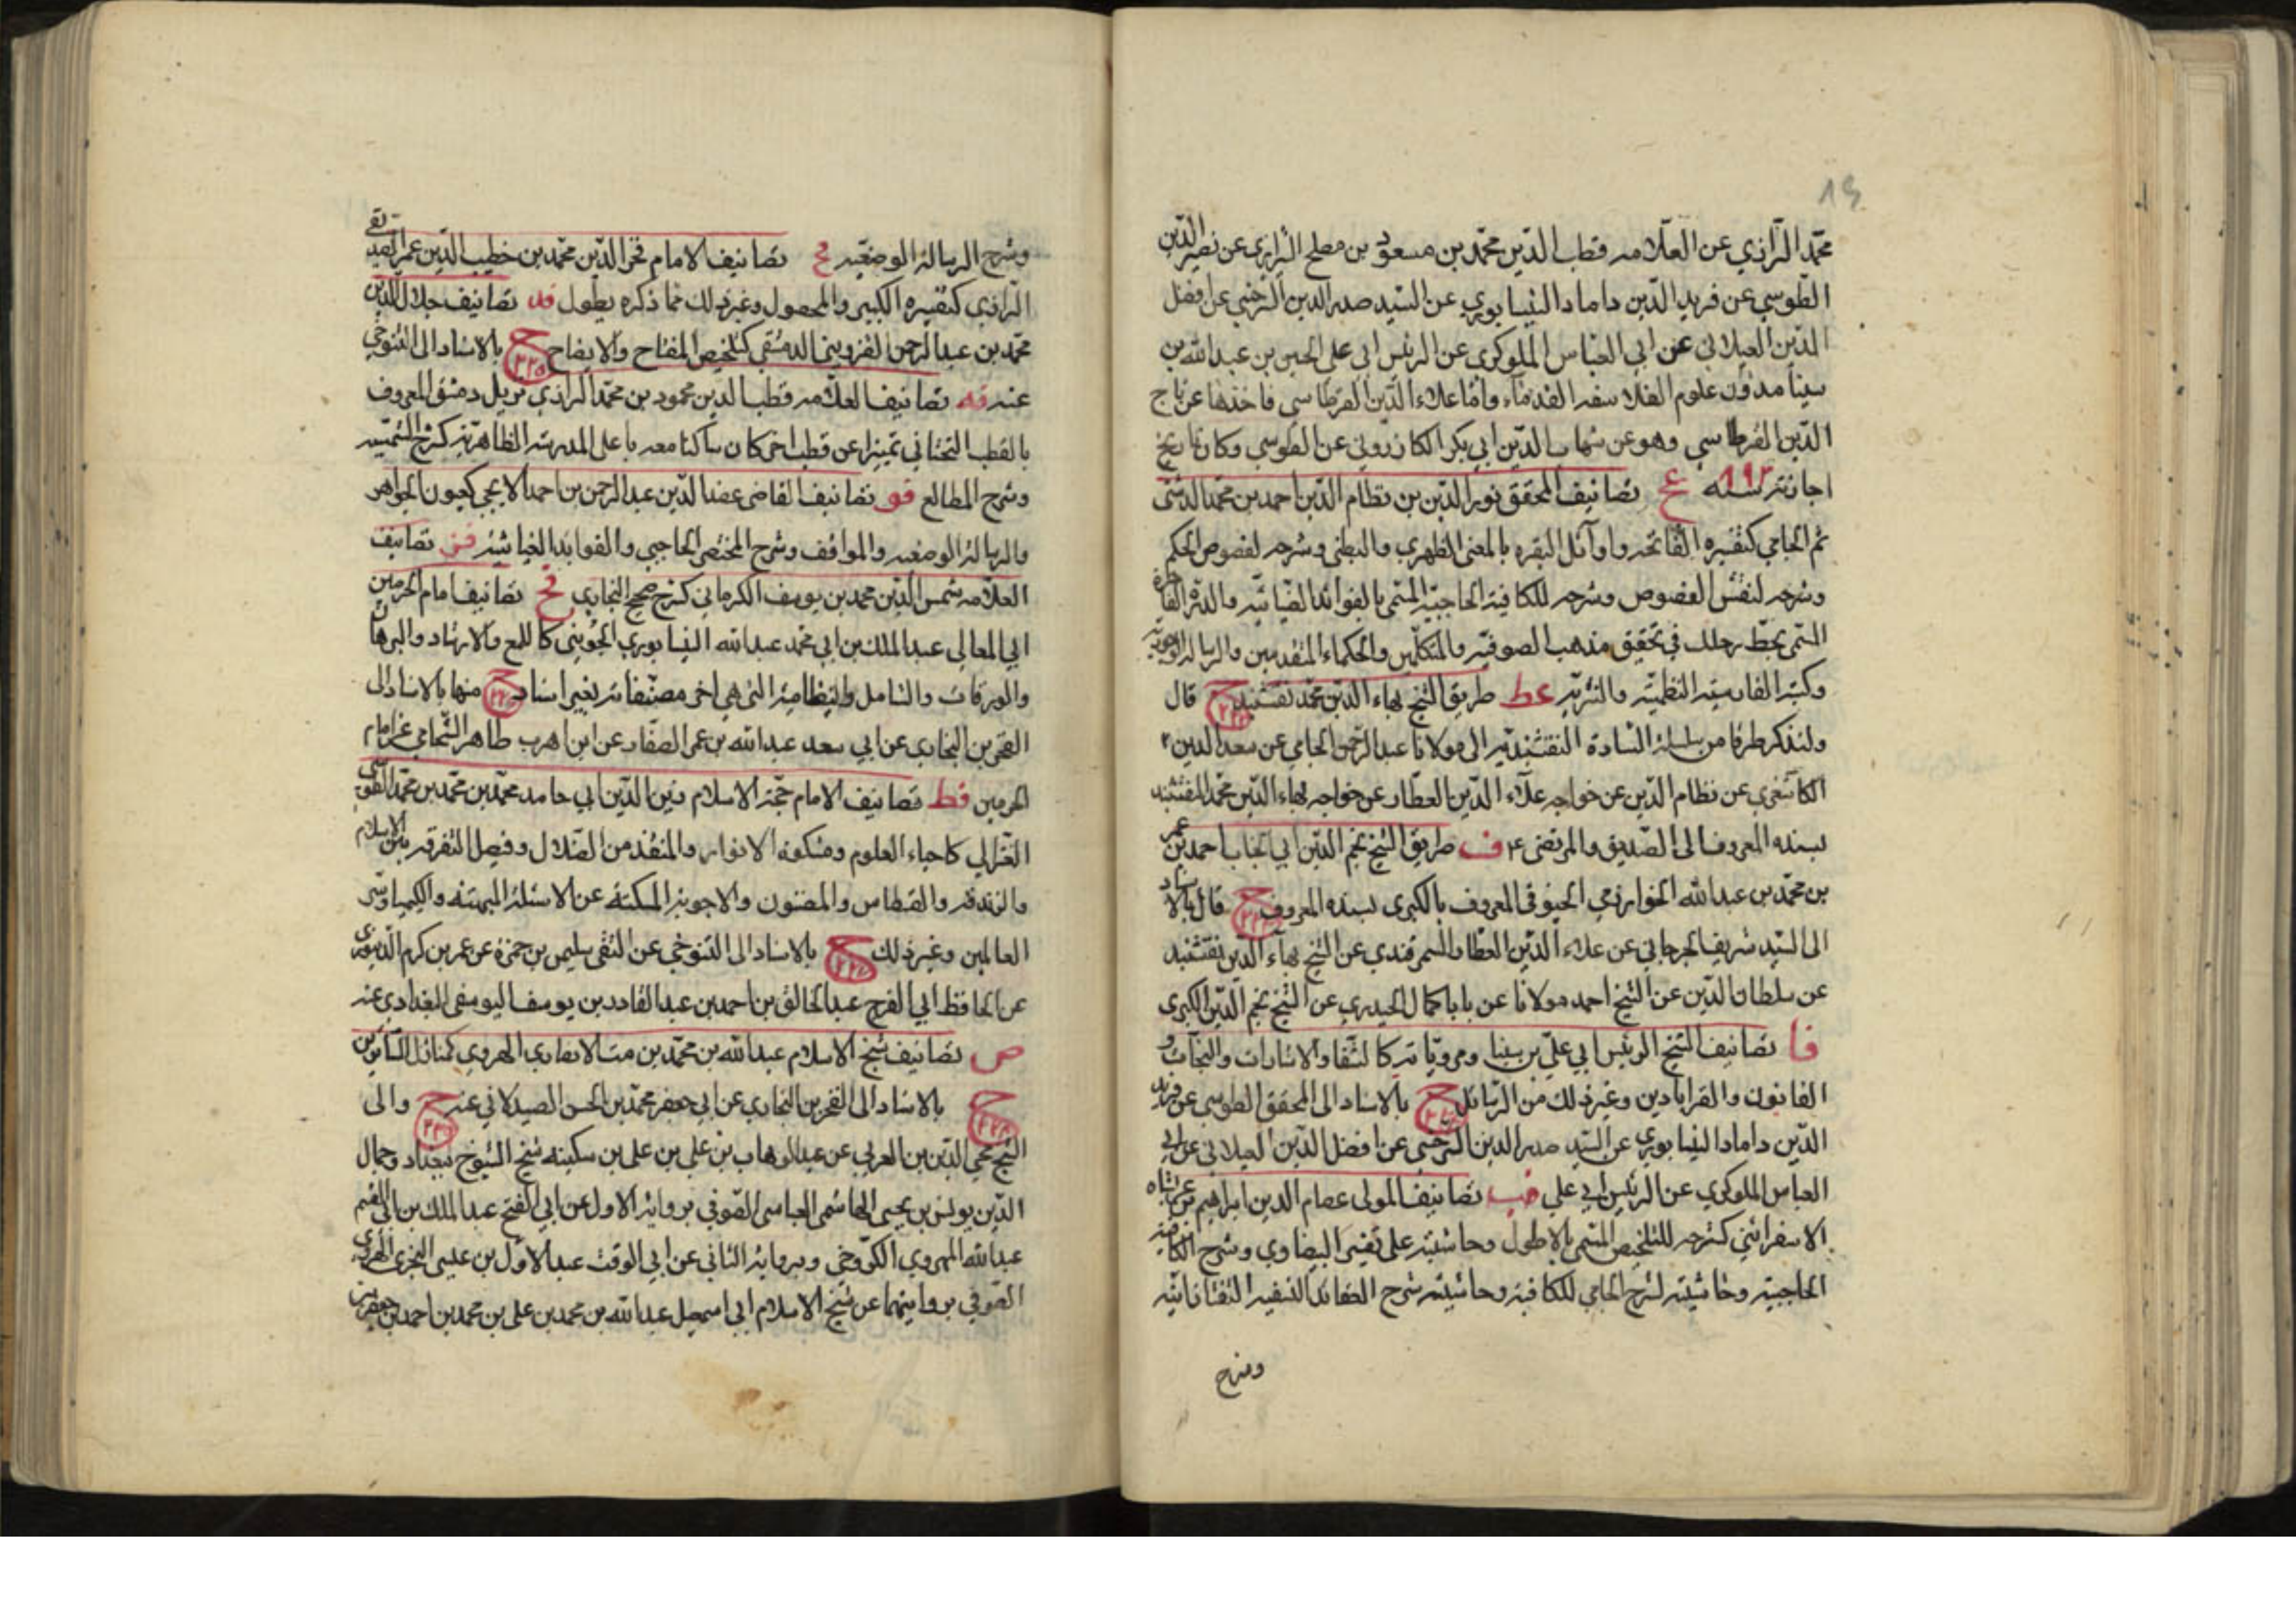 محمّد الرازي عن العلّامه قطب الدّين محمّد بن مسعود بن مصلح الشيرازي عن نصير الدّين
الطوسي عن فريد الدّين داماد النيسابوري عن السّيد صدر الدين السرخسي عن افضل
الدّين الغيلاني عن ابي العباس اللوكري عن الرئيس ابي علي الحسين بن عبد الله بن
سينا مدوّن علوم الفلاسفه القدماء وامّا علاء الدّين القرطاسي فاخذها عن تاج
الدّين القرطاسي وهو عن شهاب الدّين ابي بكر الكازروني عن الطوسي وكان تاريخ
اجازته سنه ٨٩٢ عح تصانيف المحقق نور الدّين بن نظام الدّين احمد بن محمّد الدشتي
ثم الجامي كتفسيره الفاتحه واوآئل البقره بالمعنى الظهري والبطني وشرحه لفصوص الحكم
وشرحه لنقش الفصوص وشرحه للكافية الحاجبيّة المسمّى بالفوائد الضيائيّه والدرة الفاخرة
المسمى بحطّ رحلك في تحقيق مذهب الصوفيّه والمتكلّمين والحكماء المتقدمين والرساله الوجوديّه
وكتبه الفارسيّه النظميّه والنثريّه عط طريق الشيخ بهاء الدّين محمّد نقشبند ح قال
ولنذكر طرفا من سلسلة السّادة النقشبنديّه الى مولانا عبد الرحمن الجامي عن سعد الدين
الكاشغري عن نظام الدّين عن خواجه علاء الدّين العطّار عن خواجه بهاء الدّين محمّد النقشبند
بسنده المعروف الى الصّديق والمرتضى ف طريق الشيخ نجم الدّين ابي الجناب احمد بن عمر
بن محمّد بن عبد الله الخوارزمي الخيوقي المعروف بالكبرى بسنده المعروف ح قال بالاسناد
الى السّيد شريف الجرجاني عن علاء الدّين العطار السمرقندي عن الشيخ بهآء الدّين نقشبند
عن سلطان الدّين عن الشيخ احمد مولانا عن بابا كمال الجندي عن الشيخ نجم الدّين الكبرى
فا تصانيف الشيخ الرئيس ابي علي بن سينا ومرويّاته كالشفا والاشارات والنجات و
القانون والقرابادين وغير ذلك من الرّسائل ح بالاسناد الى المحقق الطوسي عن فريد
الدّين داماد النيسابوري عن السّيد صدر الدين السرخسي عن افضل الدّين الغيلاني عن ابي
العباس اللوكري عن الرئيس ابي علي فب تصانيف المولى عصام الدين ابراهيم بن عربشاه
الاسفرائني كشرحه للتلخيص المسمّى بالاطول وحاشيته على تفسير البيضاوي وشرح الكافيه
الحاجبيّه وحاشيته لشرح الجامي للكافية وحاشيته شرح العقائد النسفيه التفتازانيّه
وشرح
وشرح الرسالة الوضعيّه فج تصانيف الامام فخر الدّين محمّد بن خطيب الدّين عمر الصديقي
الرازي كتفسيره الكبير والمحصول وغير ذلك ممّا ذكره يطول فد تصانيف جلال الدّين
محمّد بن عبد الرحمن القزويني الدمشقي كتلخيص المفتاح والايضاح ح بالاسناد الى التنوخي
عنه فه تصانيف العلّامه قطب الدين محمود بن محمّد الرازي نزيل دمشق المعروف
بالقطب التحتاني تمييزا عن قطب اخر كان ساكنا معه باعلى المدرسة الظاهريّة كشرح الشمسيّه
وشرح المطالع فو تصانيف القاضي عضد الدّين عبد الرحمن بن احمد الايجي كعيون الجواهر
والرسالة الوضعيه والمواقف وشرح المختصر الحاجبي والفوائد الغياثيّه فز تصانيف
العلّامه شمس الدّين محمد بن يوسف الكرماني كشرح صحيح البخاري فح تصانيف امام الحرمين
ابي المعالي عبد الملك بن ابي محمد عبد الله النيسابوري الجويني كاللمع والارشاد والبرهان
والورقات والشامل والنظامية التي هي اخر مصنّفاته بغير اسناد ح منها بالاسناد الى
الفخر بن البخاري عن ابي سعد عبد الله بن عمر الصفّار عن ابن اهرب طاهر الشحامي عن امام
الحرمين فط تصانيف الامام حجّة الاسلام زين الدّين ابي حامد محمّد بن محمّد بن محمّد الطوسي
الغزالي كاحياء العلوم ومشكوة الانوار والمنقذ من الضلال وفيصل التفرقه بين الاسلام
والزندقه والقسطاس والمضنون والاجوبة المسكتة عن الاسئلة المبهتة والكيميا وسر
العالمين وغير ذلك ح بالاسناد الى التنوخي عن التقي سليمن بن حمزة عن عمر بن كرم الدّينوري
عن الحافظ ابي الفرج عبد الخالق بن احمد بن عبد القادر بن يوسف اليوسفي البغدادي عنه
ص تصانيف شيخ الاسلام عبد الله بن محمّد بن مت الانصاري الهروي كمنازل السّائرين
ح بالاسناد الى الفخر بن البخاري عن ابي جعفر محمّد بن الحسن الصيدلاني عنه ح والى
الشيخ محيي الدّين بن العربي عن عبد الوهاب بن علي بن علي بن سكينه شيخ الشيوخ ببغداد وجمال
الدّين يونس بن يحيى الهاشمي العباسي الصّوفي برواية الاول عن ابي الفتح عبد الملك بن ابي القسم
عبد الله الهروي الكرّوخي وبرواية الثاني عن ابي الوقت عبد الاوّل بن عيسى السجزي الهروي
الصّوفي بروايتهما عن شيخ الاسلام ابي اسمعيل عبد الله بن محمد بن علي بن محمد بن احمد بن جعفر بن